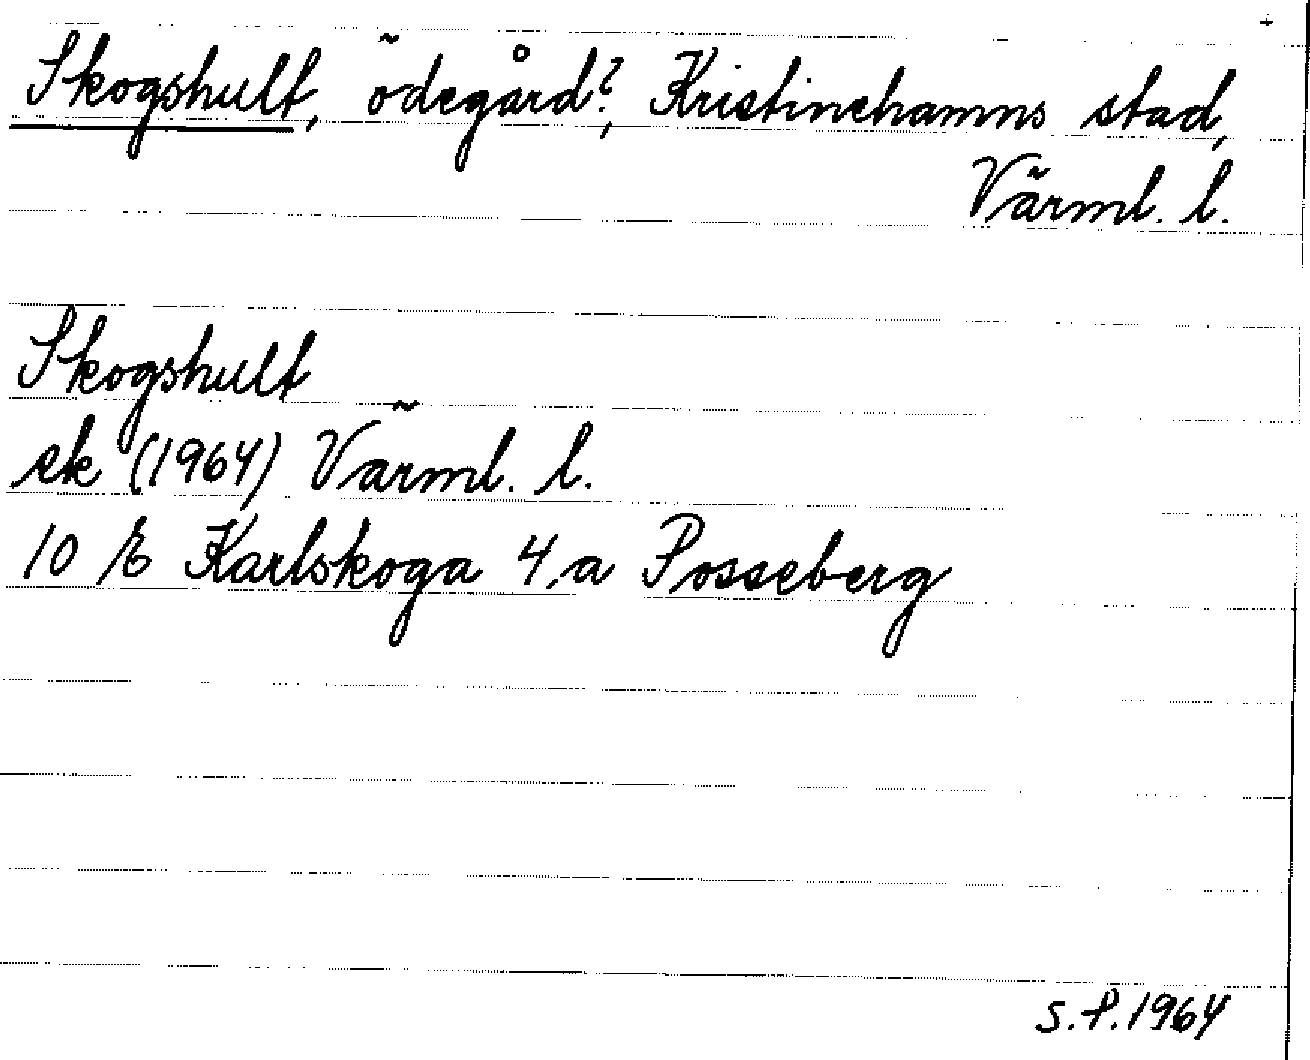 Skogshult, ödegård?, Kristinehamns stad,
Värml. l.
Skogshult
ek (1964) Värml. l.
10 E Karlskoga 4,a Posseberg
S.P.1964